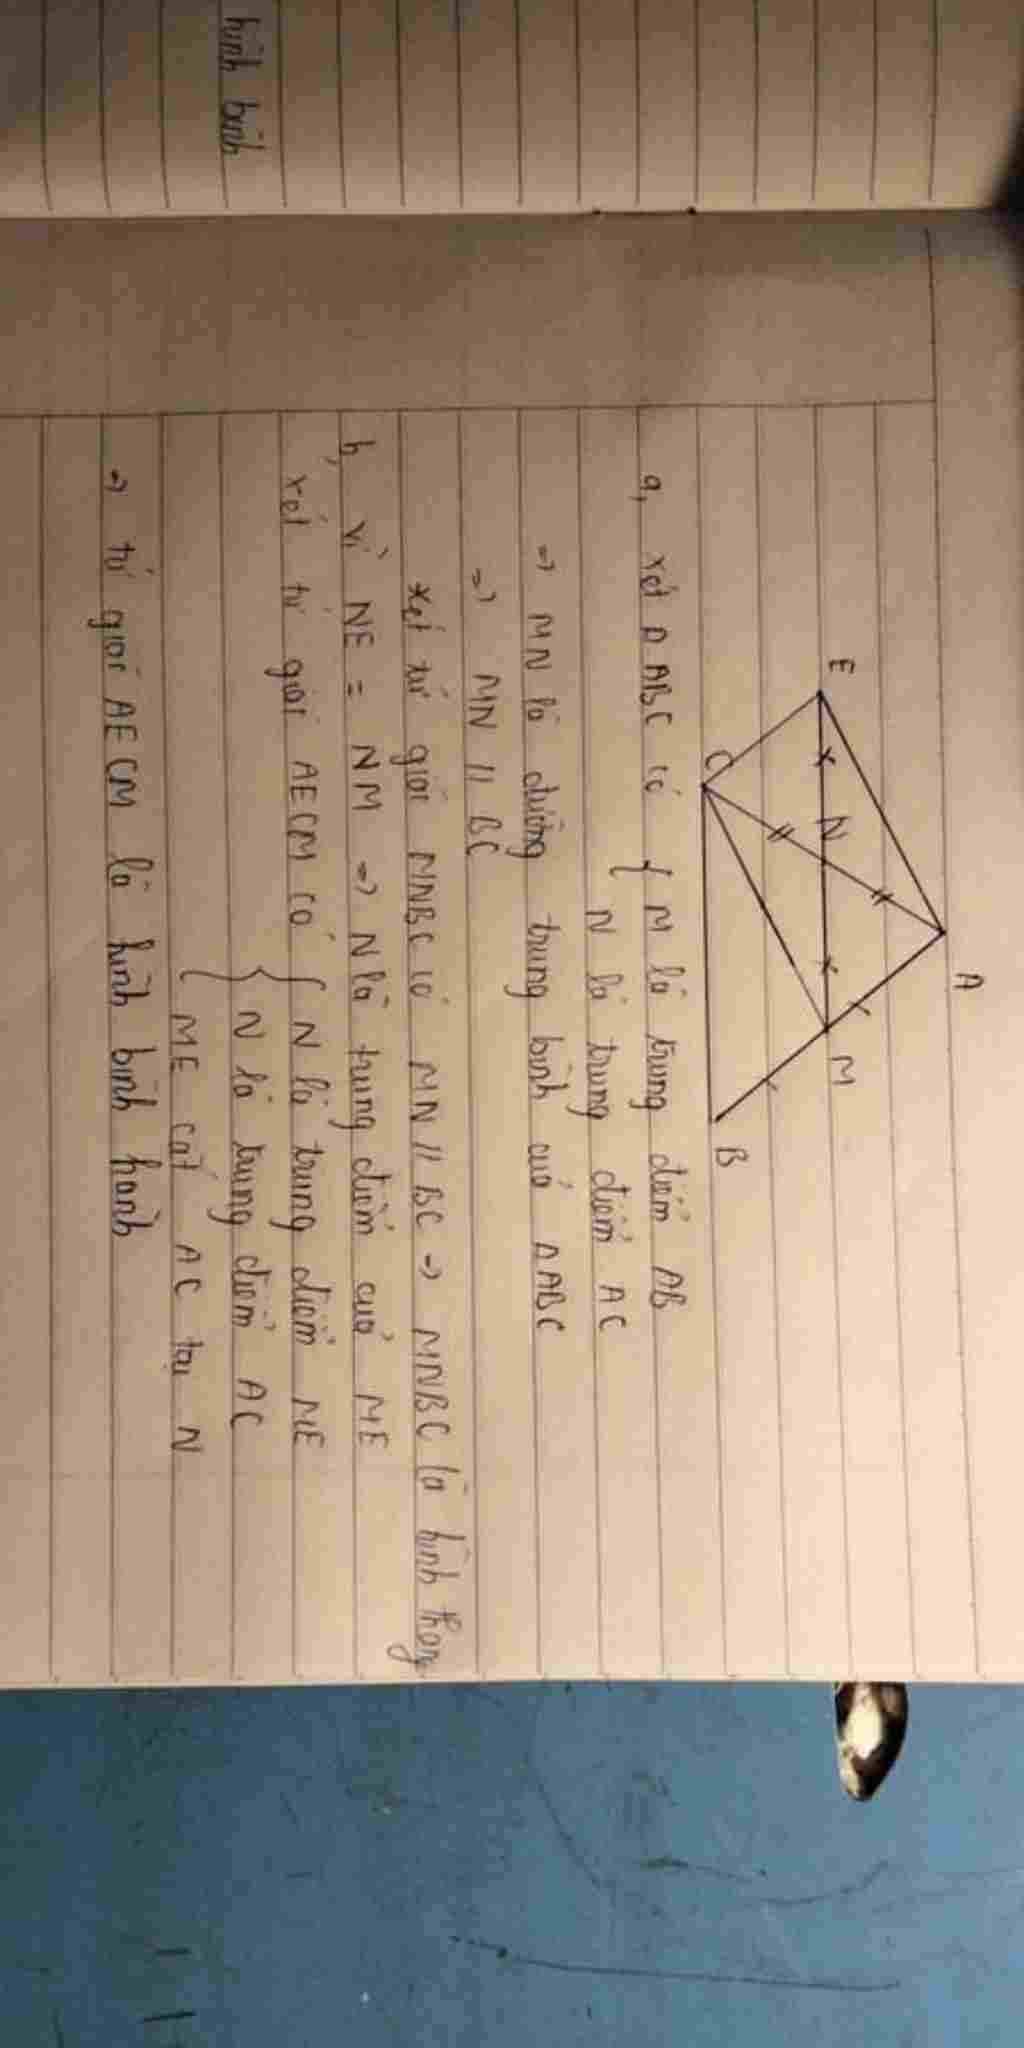 hình bình
A
E
N
M
C
B
a, xét ΔABC có { M là trung điểm AB
N là trung điểm AC
=> MN là đường trung bình của ΔABC
=> MN // BC
xét tứ giác MNBC có MN // BC => MNBC là hình thang
b, vì NE = NM => N là trung điểm của ME
xét tứ giác AECM có { N là trung điểm ME
{ N là trung điểm AC
{ ME cắt AC tại N
=> tứ giác AECM là hình bình hành